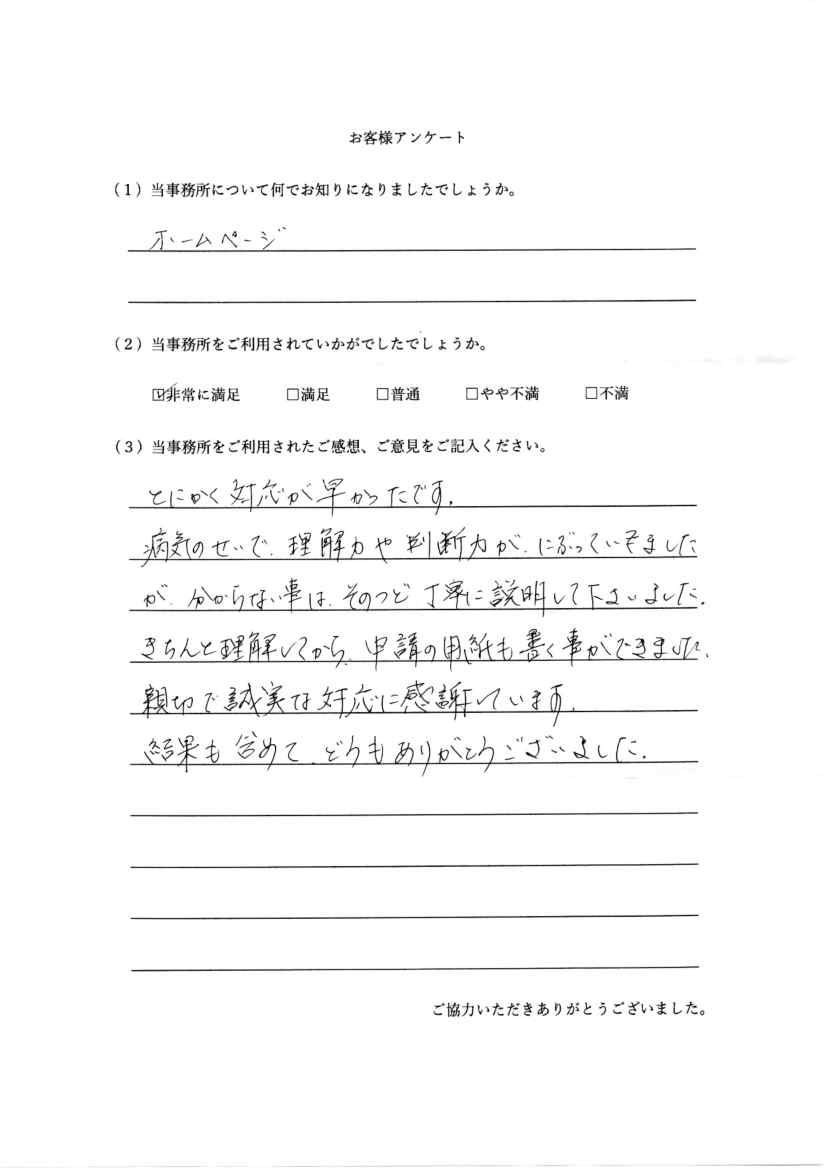 お客様アンケート
（1）当事務所について何でお知りになりましたでしょうか。
ホームページ
（2）当事務所をご利用されていかがでしたでしょうか。
☑非常に満足 □満足 □普通 □やや不満 □不満
（3）当事務所をご利用されたご感想、ご意見をご記入ください。
とにかく対応が早かったです。
病気のせいで、理解力や判断力が、にぶっていきました
が、分からない事は、そのつど丁寧に説明して下さいました。
きちんと理解してから、申請の用紙も書く事ができました。
親切で誠実な対応に感謝しています。
結果も含めて、どうもありがとうございました。
ご協力いただきありがとうございました。